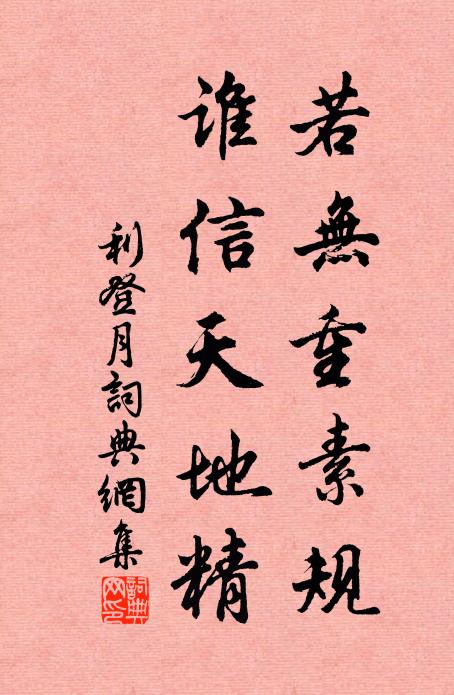 若無重素規
誰信天地精
利登月詞典網集